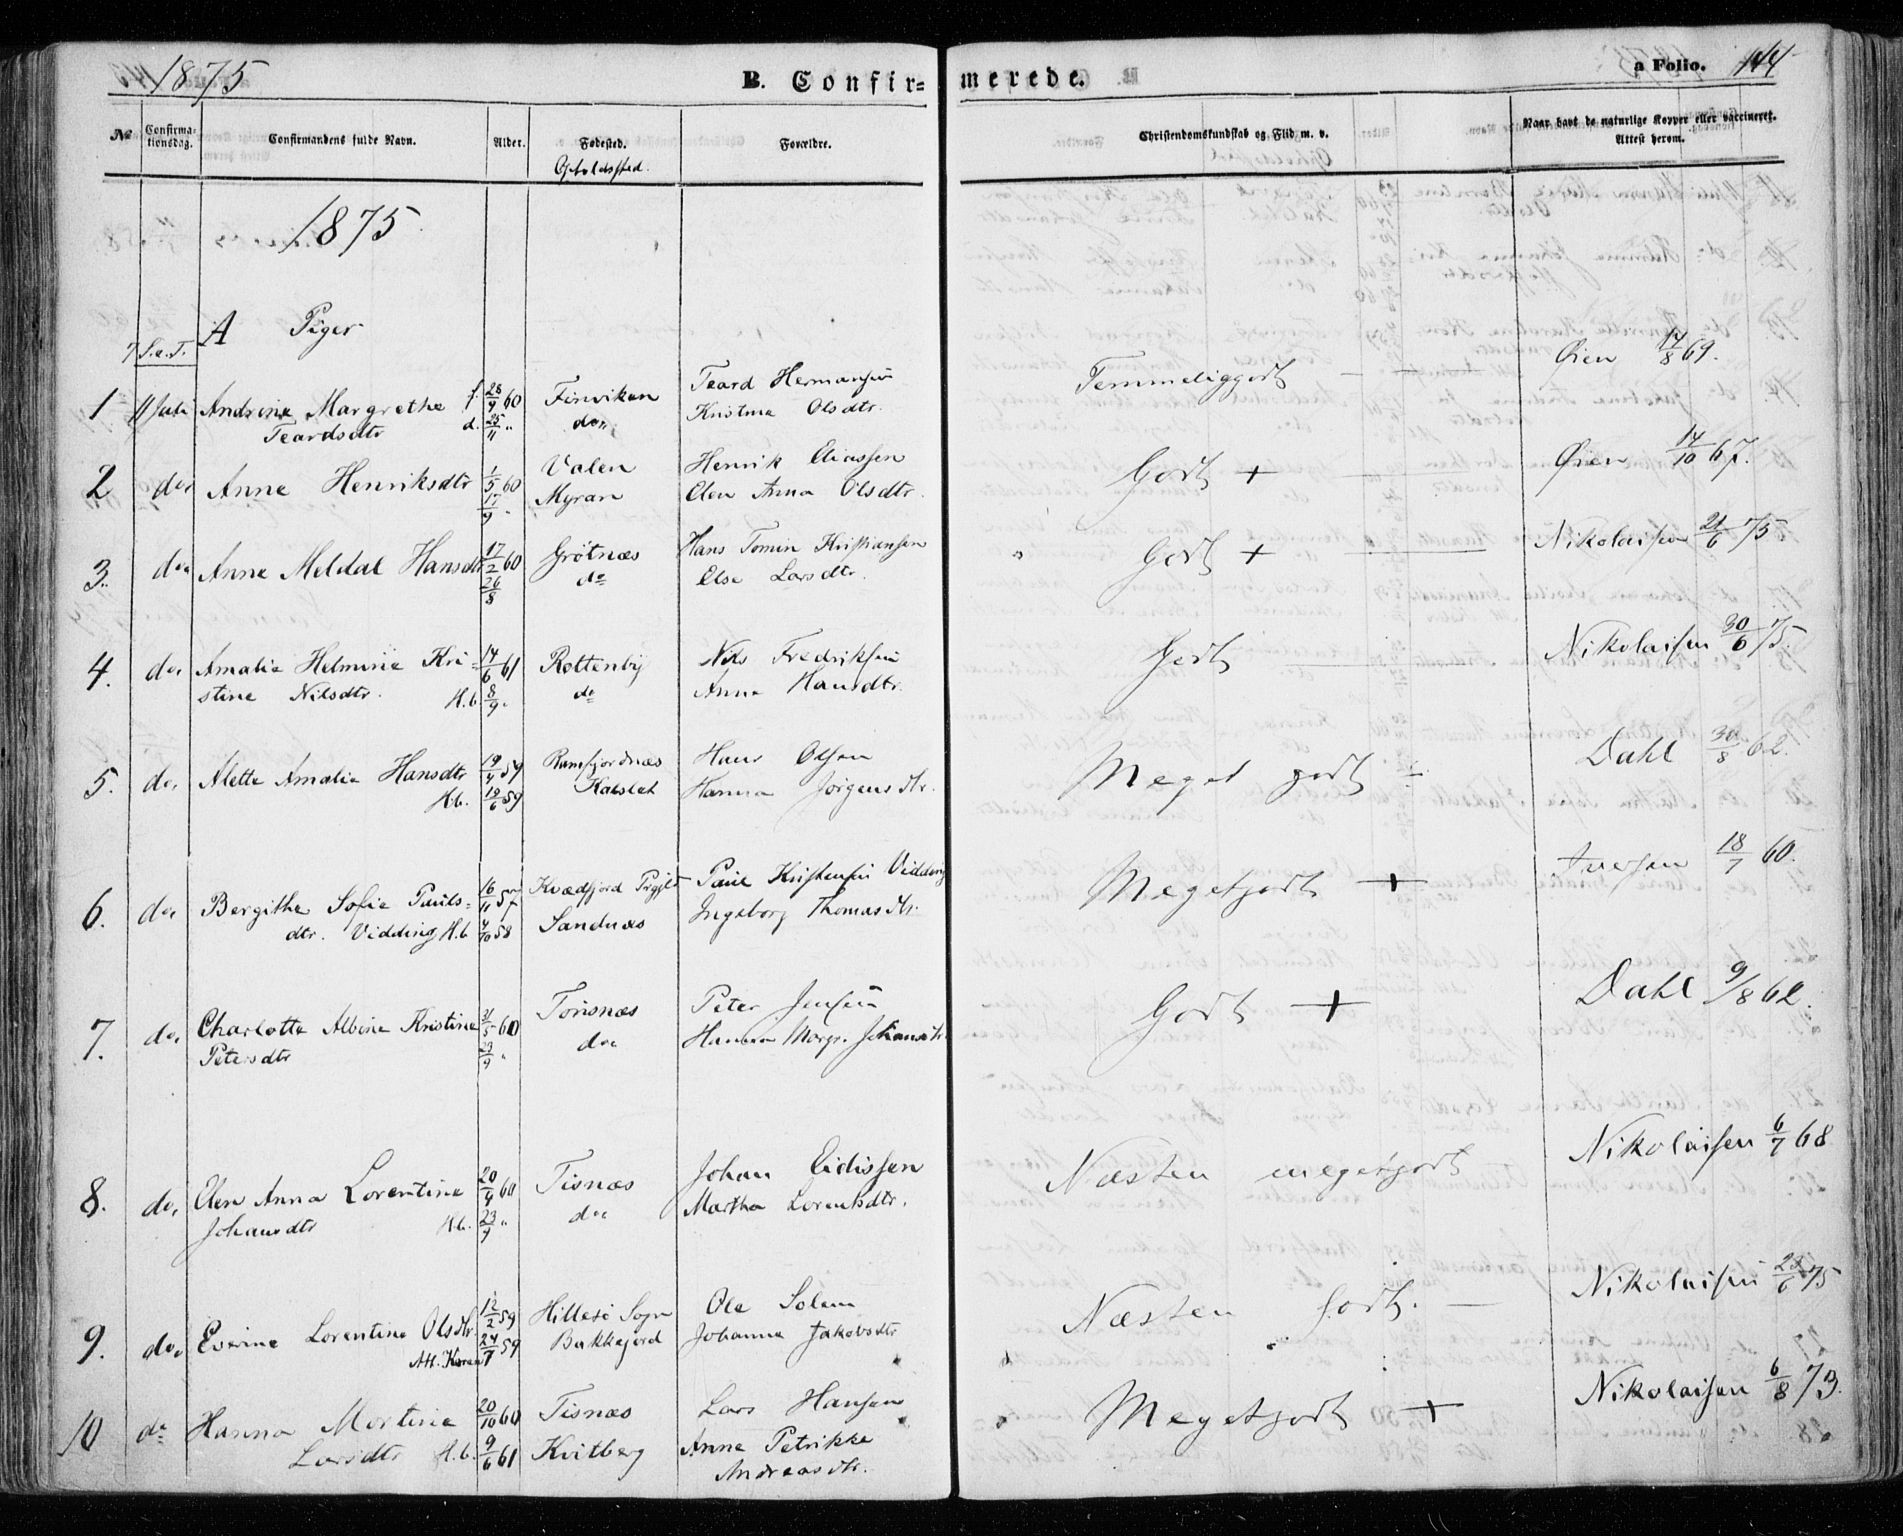 1875 B. Confir= merede. a Folio. 144
№ Confirma-tionsdag. Confirmandens fulde Navn. Alder. Fødested. Forældre. Christendomskundskab og Flid m. v. Naar havt de naturlige Kopper eller vaccineret. Attest herom.
Opholdssted.
1875.
A Piger
7 S.e.T.
1 11 Juli Andrine Margrethe f. 28/9 60 Finviken Teard Hermansen Temmeliggodt — — Øien 17/8 69.
Teardsdtr d. 25/11 " do Kristine Olsdtr.
2 do Anne Henriksdtr 1/5 60 Valen Henrik Eliassen Godt + — Øien 14/10 67.
17/9 " Myran Elen Anna Olsdtr.
3. do Anne Meldal Hansdtr 17/2 60 Grötnæs Hans Tomin Kristiansen Godt + — Nikolaisen 21/6 75
26/8 do Else Larsdtr.
4. do. Amalie Helmine Kri- 14/6 61 Rottenby Nils Fredriksen Godt — Nikolaisen 30/6 75.
stine Nilsdtr. H.b. 8/9 " do Anna Hansdtr.
5. do. Alette Amalie Hansdtr 19/4 59 Ramfjordnæs Hans Olsen Meget godt ÷ Dahl 30/8 62.
H.b. 19/6 59 Kalslet Hanna Jørgensdtr.
6. do. Bergithe Sofie Pauls= 16/11 57 Kvædfjord Prgjld Paul Kristensen Vidding Megetgodt + Iversen 18/7 60.
dtr. Vidding H.b. 4/10 58 Sandnæs Ingeborg Thomasdtr.
7. do. Charlotte Albine Kristine 31/5 60 Tonsnæs Peter Jensen Godt + Dahl 9/8 62.
Petersdtr 23/9 " do Hanna Margr. Johansdtr.
8. do. Elen Anna Lorentine 20/4 60 Tisnæs Johan Eidissen Næsten megetgodt Nikolaisen 6/7 68
Johansdtr H.b. 23/9 " do Martha Lorentsdtr.
9. do. Everine Lorentine Olsdtr. 12/2 59 Hillesö Sogn Ole Solem Næsten godt. — Nikolaisen 23/6 75
Att. 24/7 59 Bakkejord Johanna Jakobsdtr
10 do Hanna Mortine 20/10 60 Tisnæs Lars Hansen Megetgodt + Nikolaisen 6/8 73.
Larsdtr H.b. 9/6 61 Kvitberg Anne Petrikke
Andreasdtr.